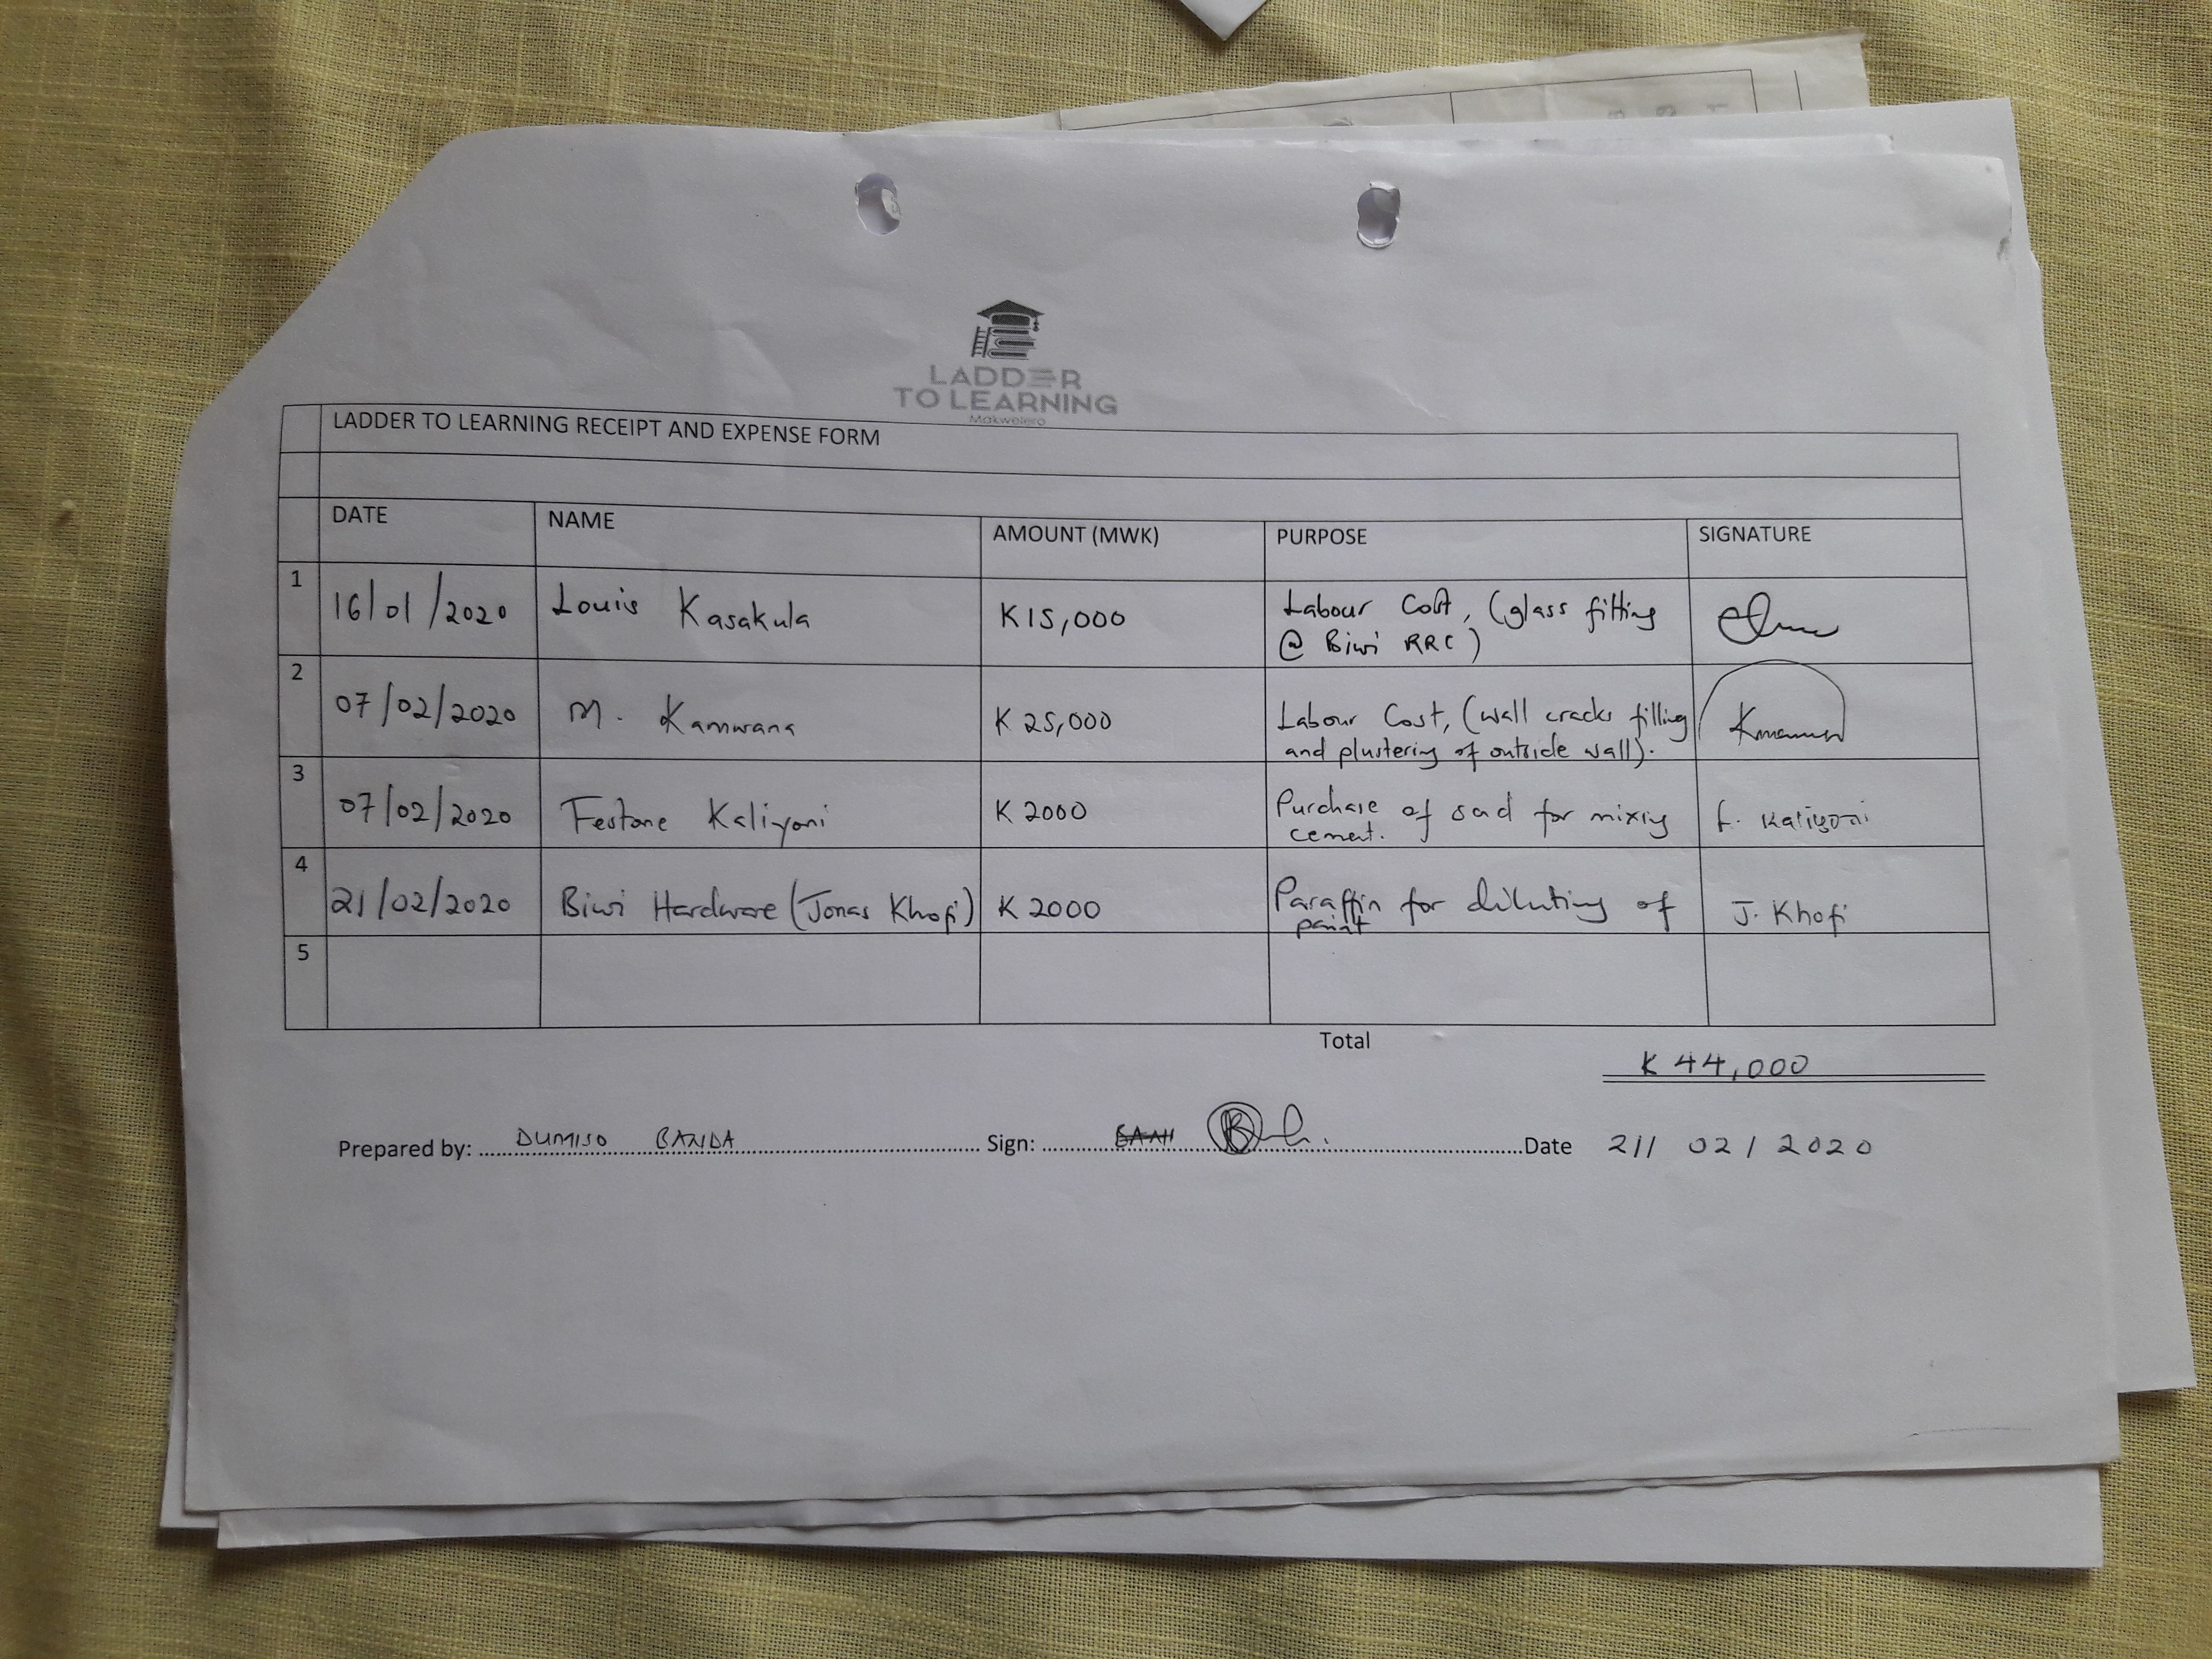 LADDER
TO LEARNING
Makwelero
LADDER TO LEARNING RECEIPT AND EXPENSE FORM
DATE NAME AMOUNT (MWK) PURPOSE SIGNATURE
1 16/01/2020 Louis Kasakula K15,000 Labour Cost, (glass fitting
@ Biwi RRC)
2 07/02/2020 M. Kamwana K 25,000 Labour Cost, (wall cracks filling
and plustering of outside wall).
3 07/02/2020 Festone Kaliyoni K 2000 Purchase of sad for mixing
cement. F. Kaliyoni
4 21/02/2020 Biwi Hardware (Jonas Khofi) K 2000 Paraffin for diluting of
paint J. Khofi
5
Total
K 44,000
Prepared by: DUMISO BANDA Sign: Date 21/ 02 / 2020